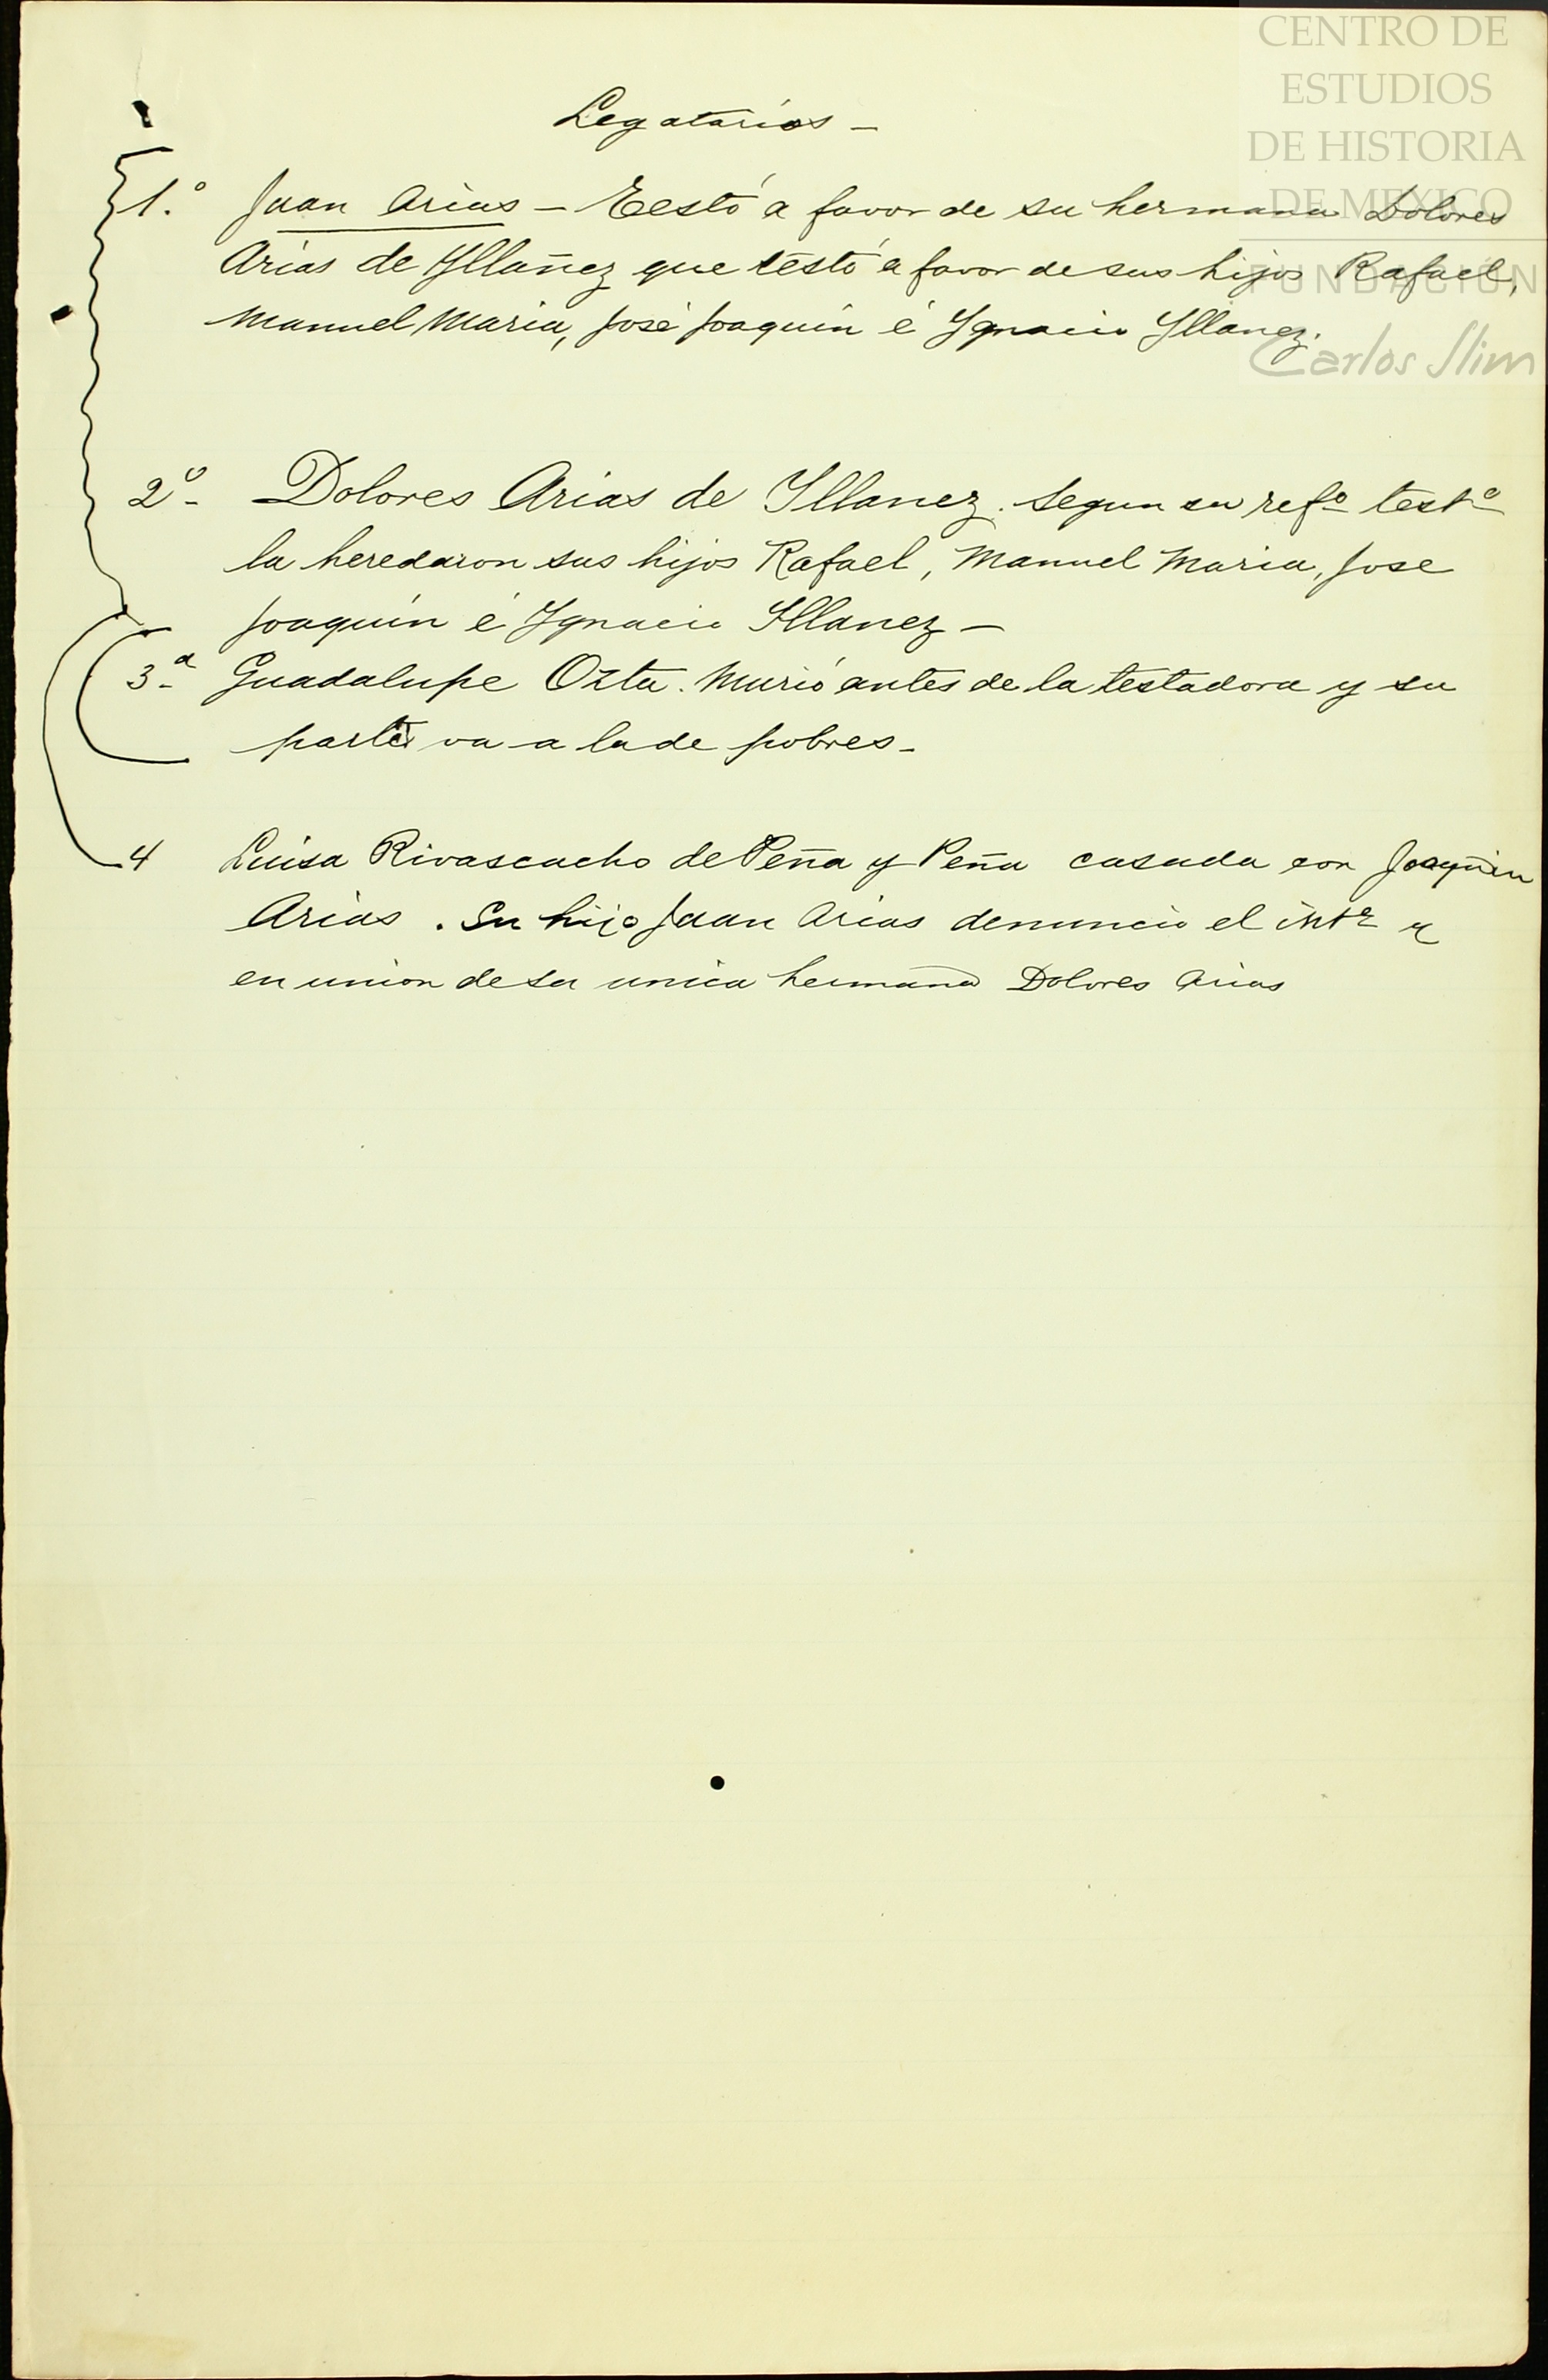 CENTRO DE
ESTUDIOS
DE HISTORIA
DE MEXICO
FUNDACIÓN
Carlos Slim
Legatarios —
1.º Juan Arias — Testó a favor de su hermana Dolores
Arias de Yllañez que testó a favor de sus hijos Rafael,
Manuel Maria, José Joaquin é Ygnacio Yllanez.
2º Dolores Arias de Yllanez. Segun su refº testº
la heredaron sus hijos Rafael, Manuel Maria, Jose
Joaquín é Ygnacio Yllanez —
3ª Guadalupe Ozta. Murió antes de la testadora y su
parte va a la de pobres —
4 Luisa Rivascacho de Peña y Peña casada con Joaquin
Arias. Su hijo Juan Arias denuncio el
en union de su unica hermana Dolores Arias